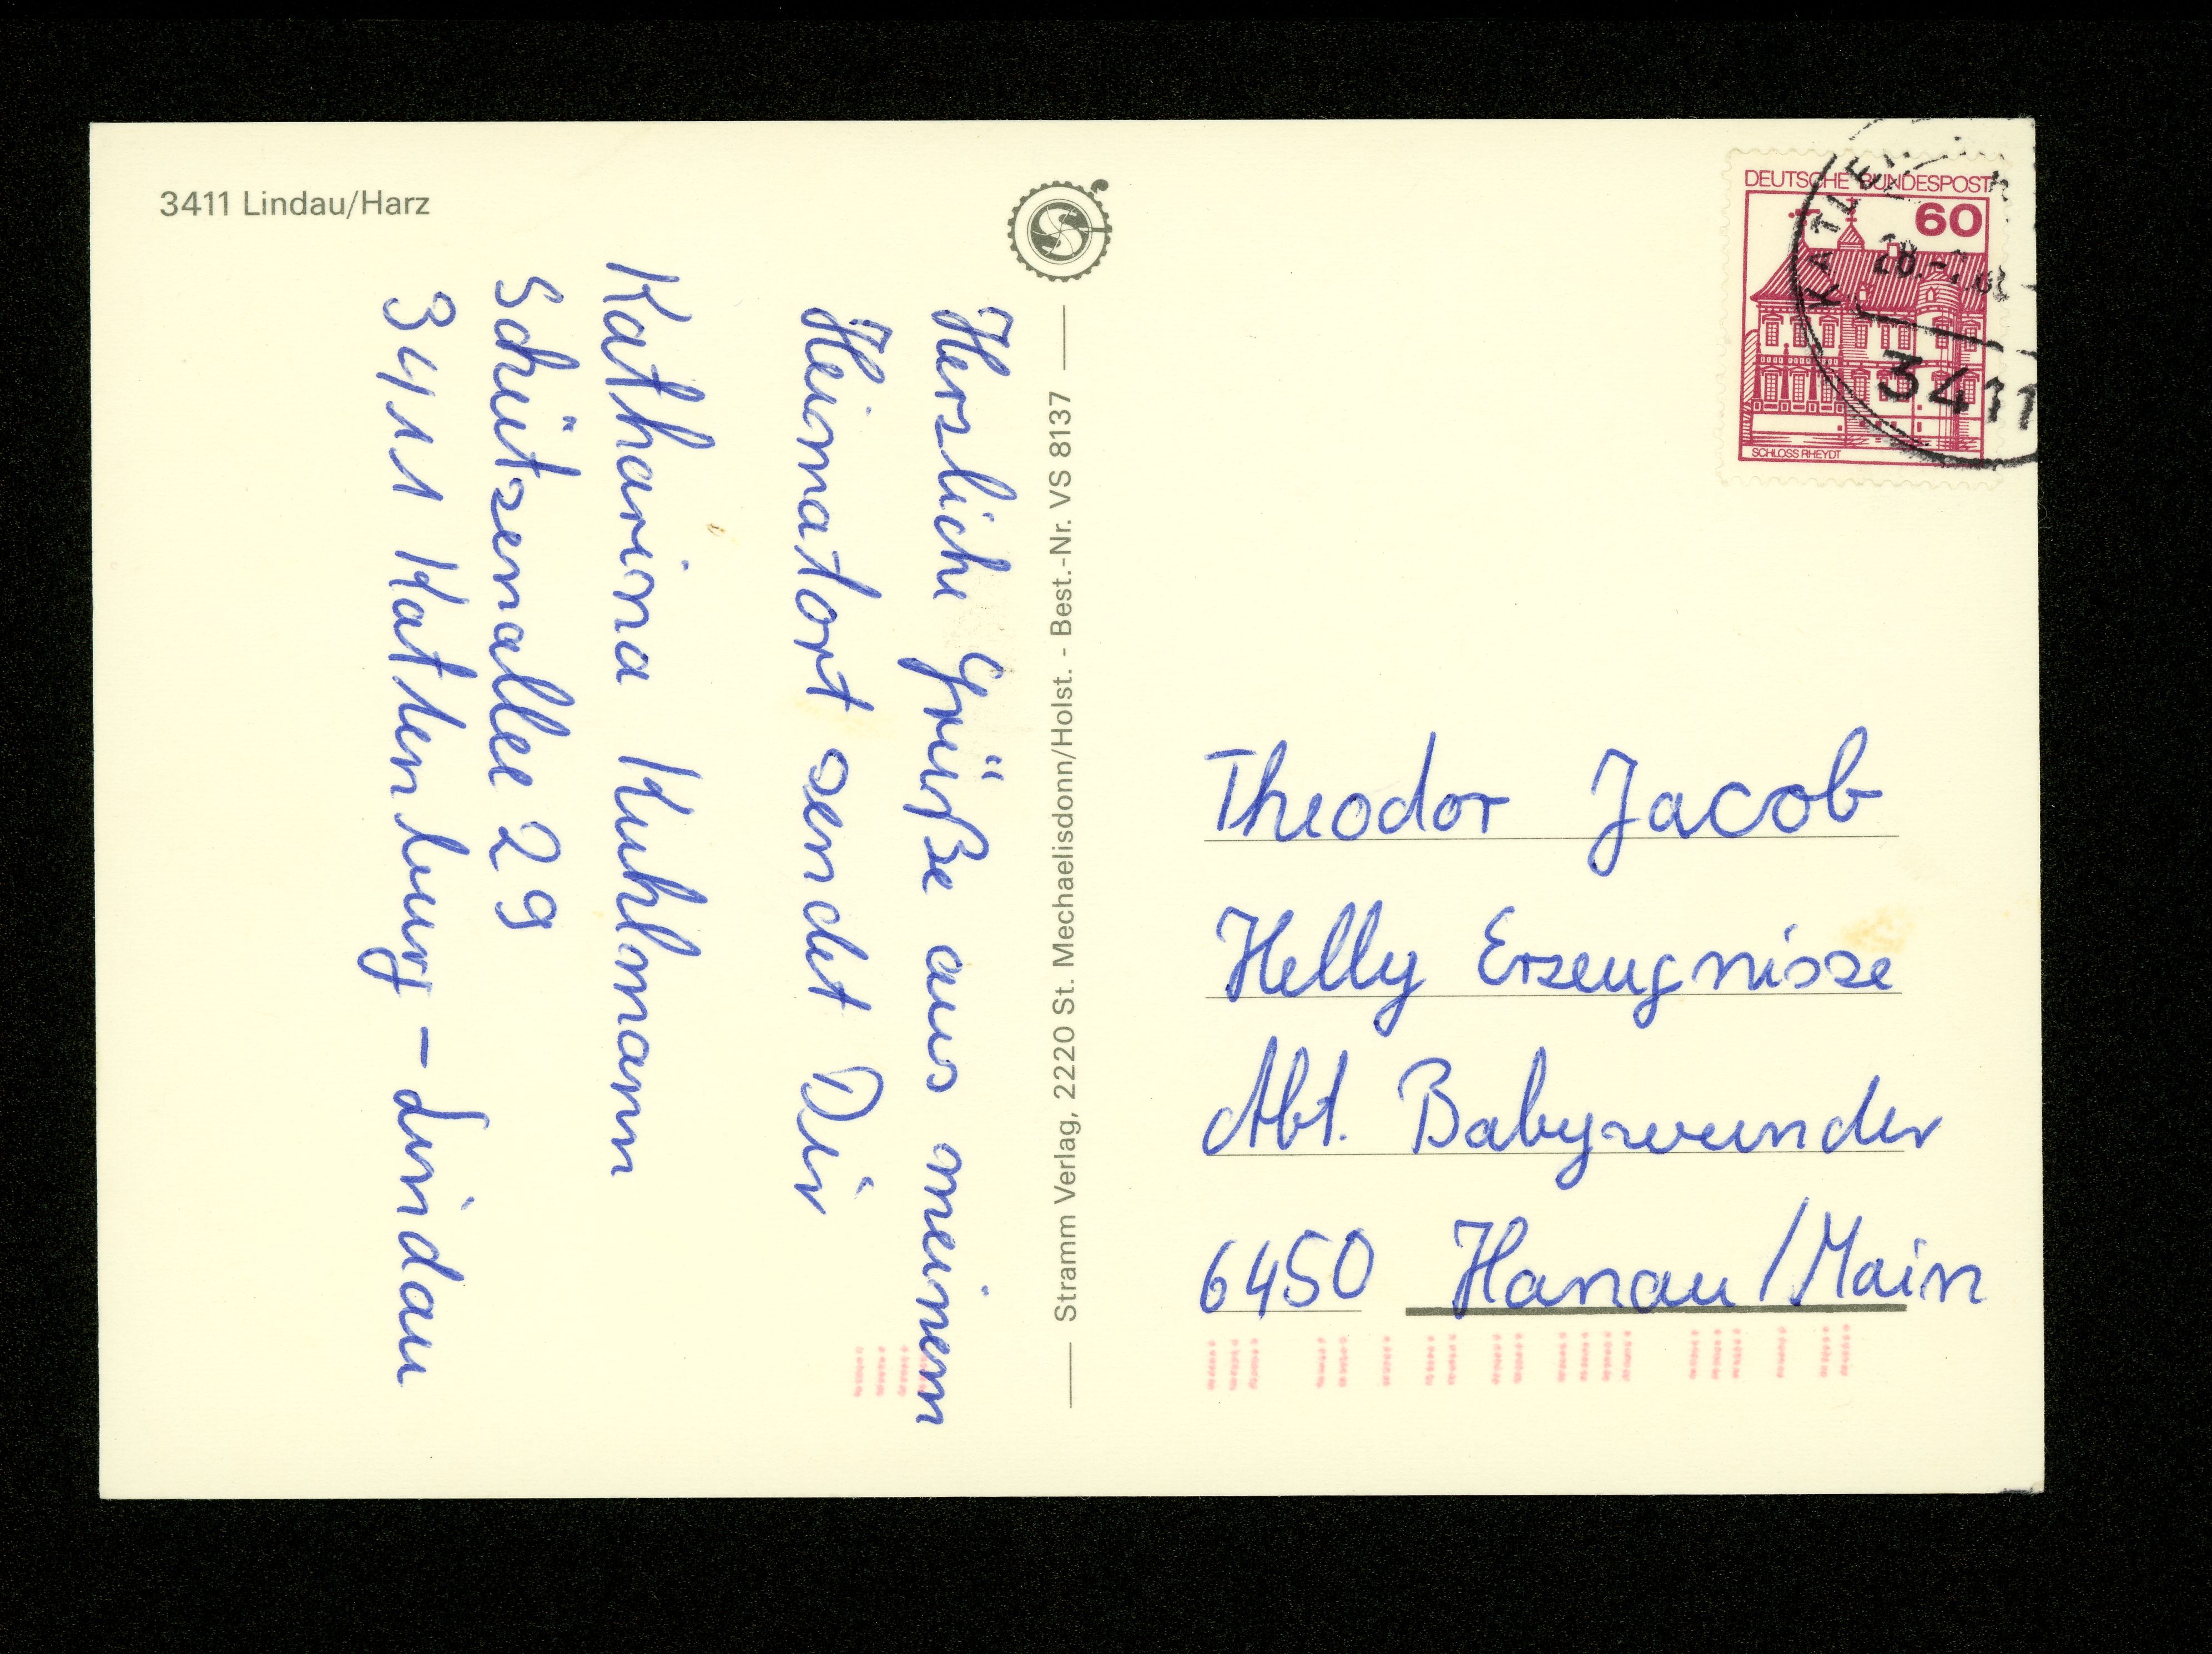 3411 Lindau/Harz
Herzliche Grüße aus meinem
Heimatort sendet Dir
Katharina Kuhlmann
Schützenallee 29
3411 Kattenburg - Lindau
Stramm Verlag, 2220 St. Mechaelisdonn/Holst. - Best.-Nr. VS 8137
DEUTSCHE BUNDESPOST
60
SCHLOSS RHEYDT
3411
Theodor Jacob
Helly Erzeugnisse
Abt. Babywunder
6450 Hanau/Main